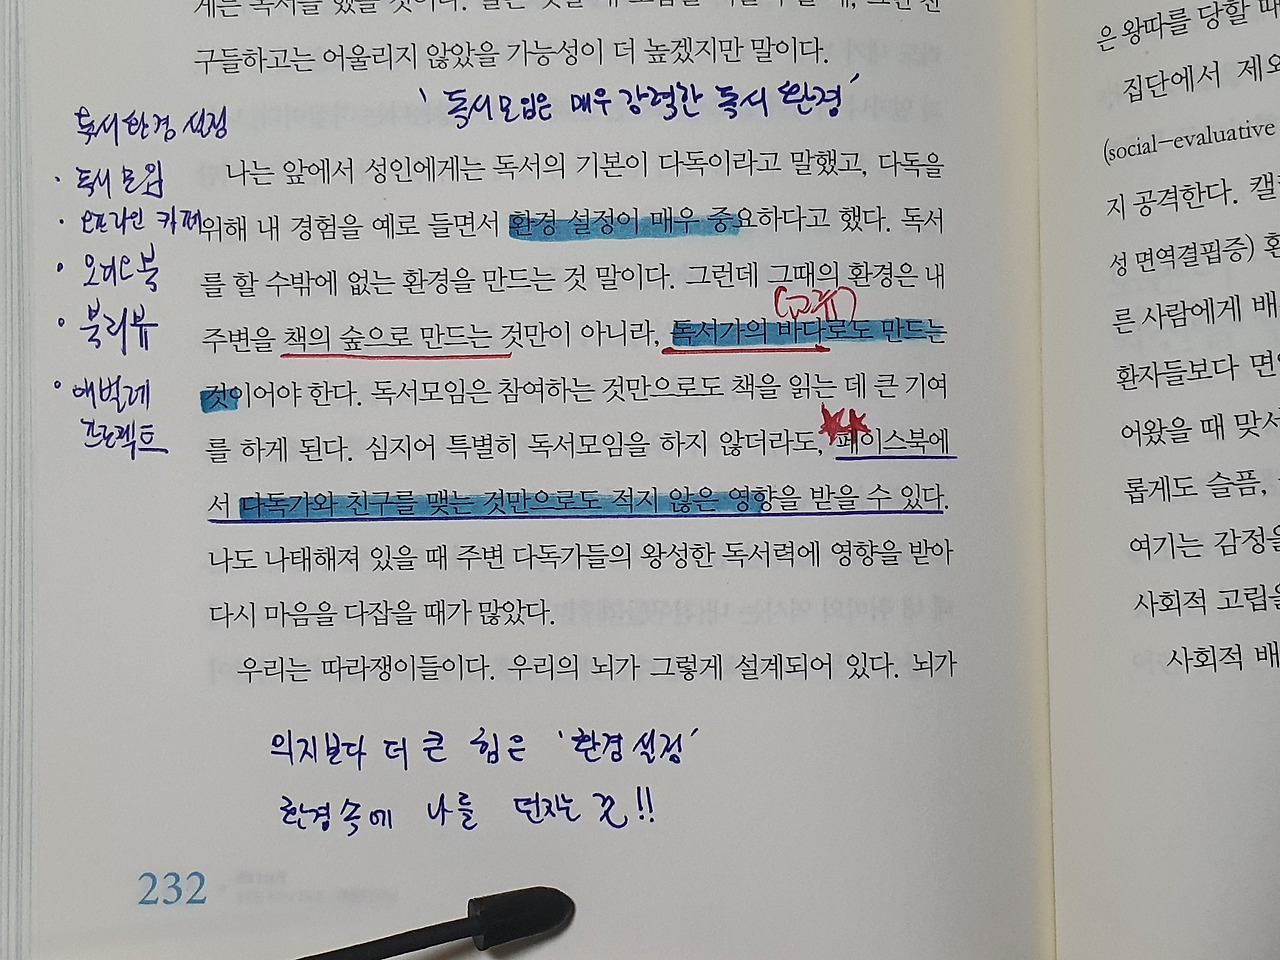 구들하고는 어울리지 않았을 가능성이 더 높겠지만 말이다.
'독서모임은 매우 강력한 독서 환경'
독서환경 설정
· 독서모임
· 오프라인 카페
· 오디오북
· 북리뷰
· 애벌레
프로젝트
나는 앞에서 성인에게는 독서의 기본이 다독이라고 말했고, 다독을
위해 내 경험을 예로 들면서 환경 설정이 매우 중요하다고 했다. 독서
를 할 수밖에 없는 환경을 만드는 것 말이다. 그런데 그때의 환경은 내
주변을 책의 숲으로 만드는 것만이 아니라, 독서가의 바다로도 만드는
것이어야 한다. 독서모임은 참여하는 것만으로도 책을 읽는 데 큰 기여
를 하게 된다. 심지어 특별히 독서모임을 하지 않더라도, 페이스북에
서 다독가와 친구를 맺는 것만으로도 적지 않은 영향을 받을 수 있다.
나도 나태해져 있을 때 주변 다독가들의 왕성한 독서력에 영향을 받아
다시 마음을 다잡을 때가 많았다.
우리는 따라쟁이들이다. 우리의 뇌가 그렇게 설계되어 있다. 뇌가
의지보다 더 큰 힘은 '환경설정'
환경속에 나를 던지는 것!!
232
은 왕따를 당할 때
집단에서 제외
(social-evaluative
지 공격한다. 캘
성 면역결핍증)
른 사람에게 배
환자들보다 면
어왔을 때 맞서
롭게도 슬픔,
여기는 감정을
사회적 고립을
사회적 배